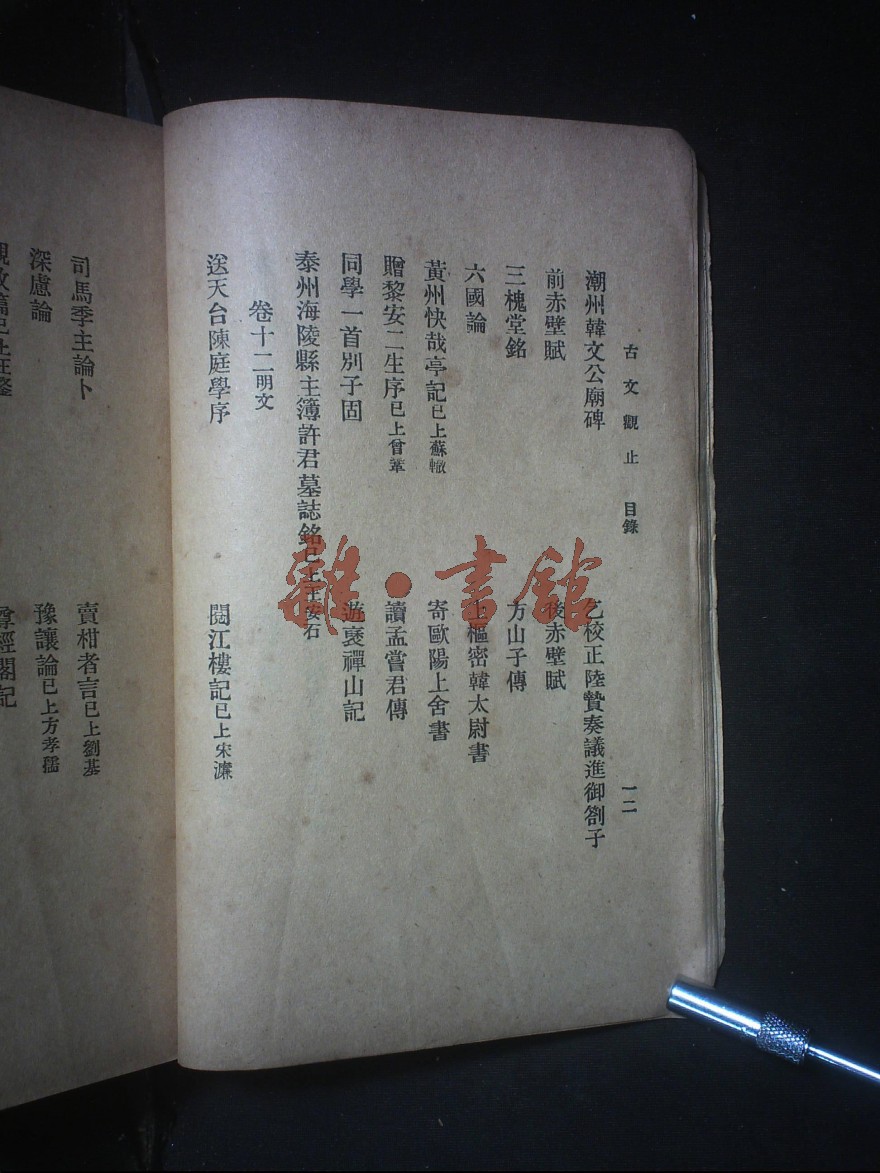 古文觀止 目錄 一二
潮州韓文公廟碑 乞校正陸贄奏議進御劄子
前赤壁賦 後赤壁賦
三槐堂銘 方山子傳
六國論 上樞密韓太尉書
黃州快哉亭記已上蘇轍 寄歐陽上舍書
贈黎安二生序已上曾鞏 讀孟嘗君傳
同學一首別子固 遊褒禪山記
泰州海陵縣主簿許君墓誌銘已上王安石
卷十二明文
送天台陳庭學序 閱江樓記已上宋濂
司馬季主論卜 賣柑者言已上劉基
深慮論 豫讓論已上方孝孺
尊經閣記
雜·書館